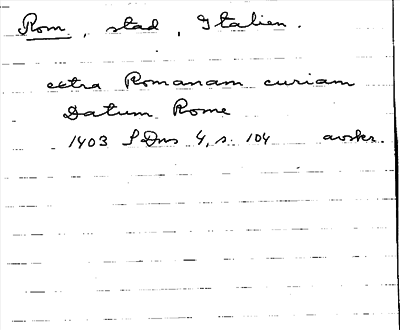 Rom, stad, Italien.
extra Romanam curiam
Datum Rome
1403 SDns 4, s. 104 avskr.